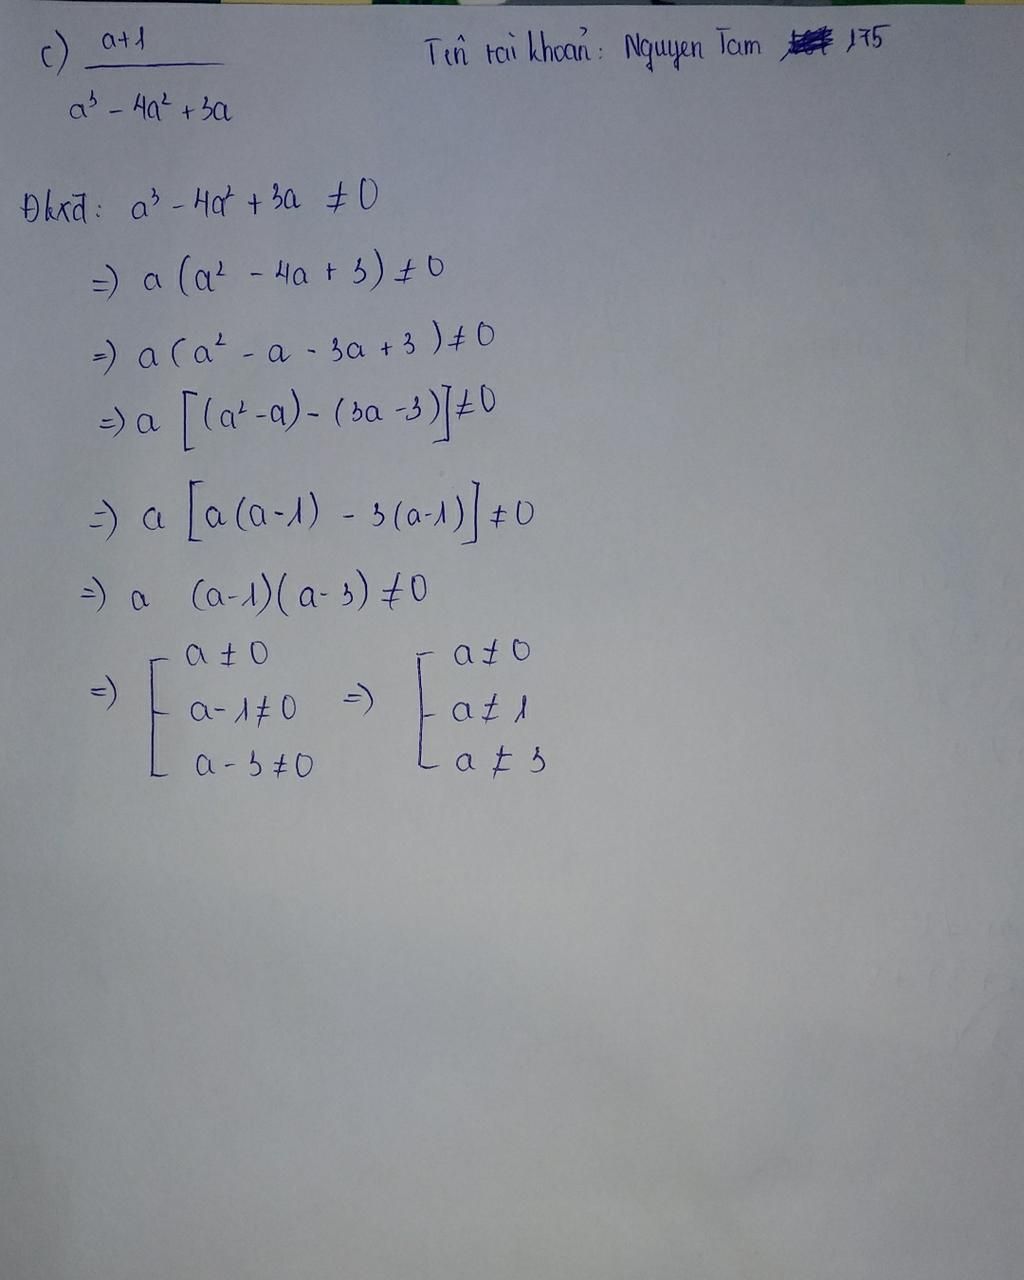 c) a+1 / a³ - 4a² + 3a
Tên tài khoản: Nguyen Tam 175
Đkxđ: a³ - 4a² + 3a ≠ 0
=) a (a² - 4a + 3) ≠ 0
=) a (a² - a - 3a + 3) ≠ 0
=) a [(a² - a) - (3a - 3)] ≠ 0
=) a [a(a-1) - 3(a-1)] ≠ 0
=) a (a-1)(a-3) ≠ 0
=) [ a ≠ 0 =) [ a ≠ 0
a - 1 ≠ 0 a ≠ 1
a - 3 ≠ 0 a ≠ 3